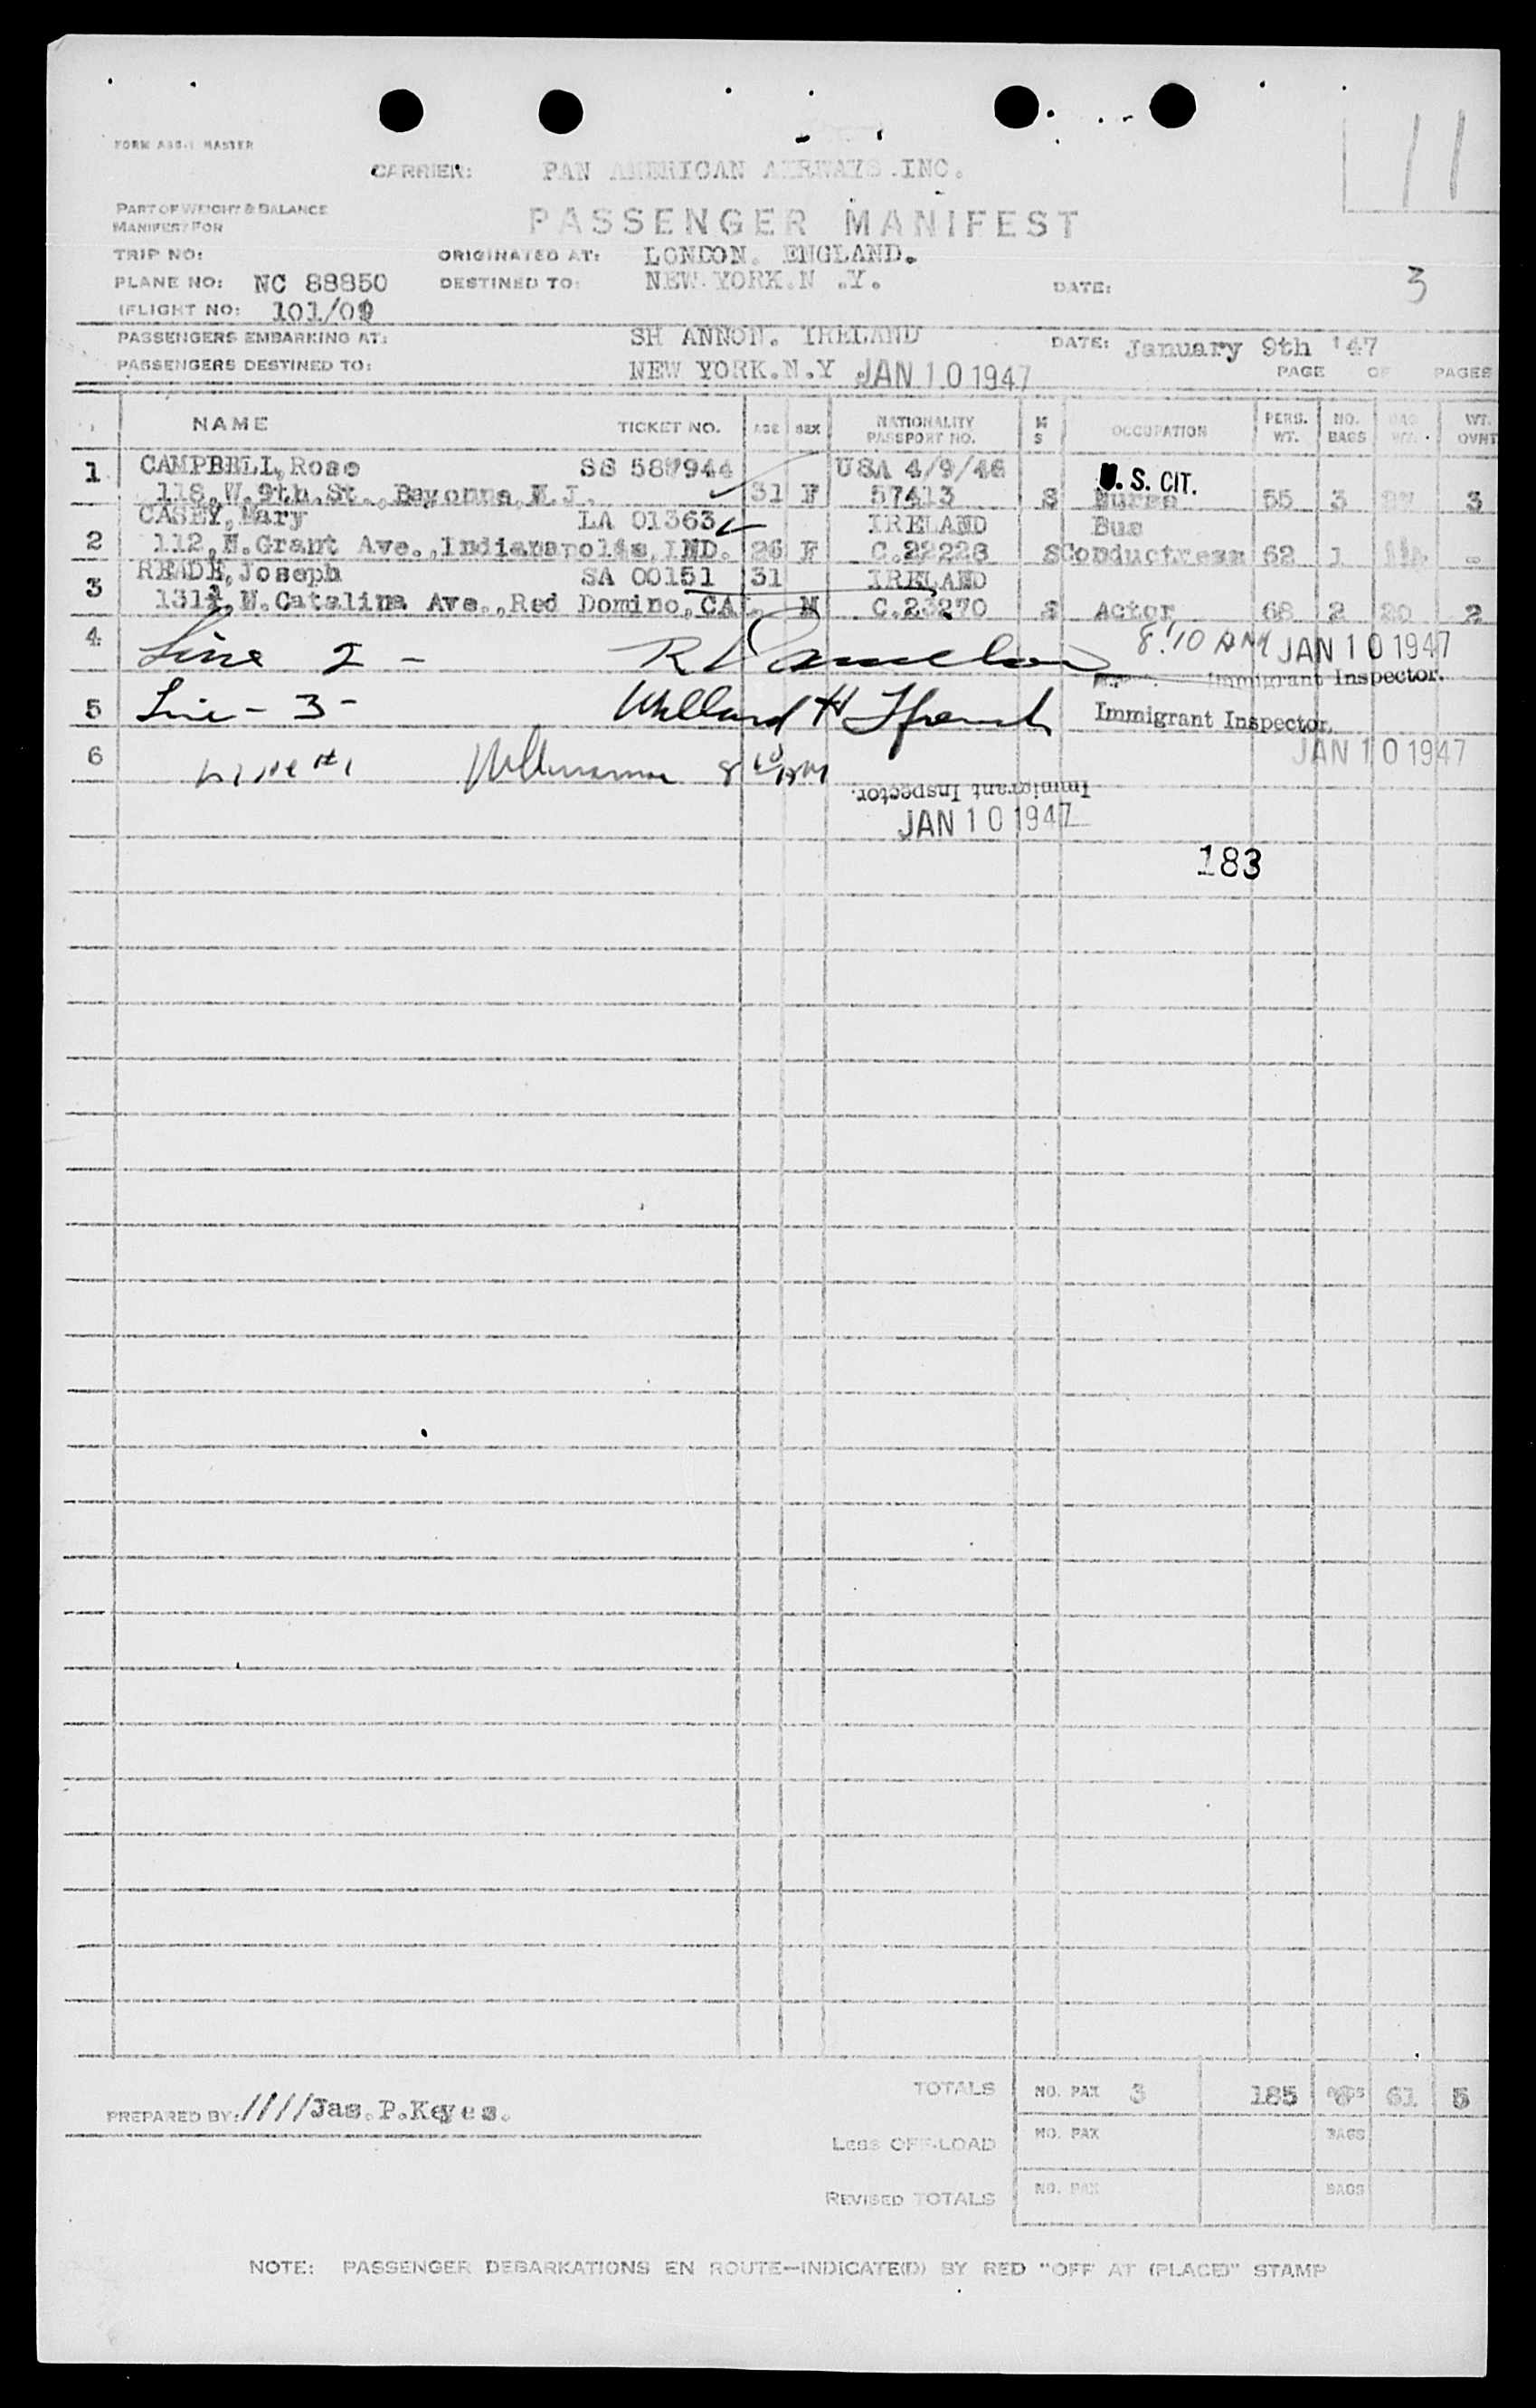 11
FORM ASB-1 MASTER
CARRIER: PAN AMERICAN AIRWAYS.INC.
PART OF WEIGHT & BALANCE
MANIFEST FOR
PASSENGER MANIFEST
TRIP NO: ORIGINATED AT: LONDON. ENGLAND.
PLANE NO: NC 88850 DESTINED TO: NEW YORK.N .Y. DATE: 3
FLIGHT NO: 101/09
PASSENGERS EMBARKING AT: SH ANNON. IRELAND DATE: January 9th '47
PASSENGERS DESTINED TO: NEW YORK.N.Y. JAN 10 1947 PAGE OF PAGES
NAME TICKET NO. AGE SEX NATIONALITY PASSPORT NO. M S OCCUPATION PERS. WT. NO. BAGS BAG WT. WT. OVNT
1 CAMPBELL, Rose SS 587944 USA 4/9/46 U.S. CIT.
118, W. 9th. St., Bayonne, N.J. 31 F 57413 S Nurse 55 3 3
CASEY, Mary LA 01363 IRELAND Bus
2 112, N. Grant Ave., Indianapolis, IND. 26 F C.22228 S Conductress 62 1 -
READE, Joseph SA 00151 31 IRELAND
3 N. Catalina Ave., Red Domino, CA. M C.23270 S Actor 68 2 20 2
4 Line 2 - 8:10 AM JAN 10 1947
Immigrant Inspector.
5 Line - 3 - Willard H French Immigrant Inspector.
JAN 10 1947
6 Line #1 8 10 AM
Immigrant Inspector.
JAN 10 1947
183
TOTALS NO. PAX 3 185 BAGS 6 61 5
PREPARED BY: ////Jas. P. Keyes.
LESS OFF-LOAD NO. PAX BAGS
REVISED TOTALS NO. PAX BAGS
NOTE: PASSENGER DEBARKATIONS EN ROUTE—INDICATE(D) BY RED "OFF AT (PLACE)" STAMP